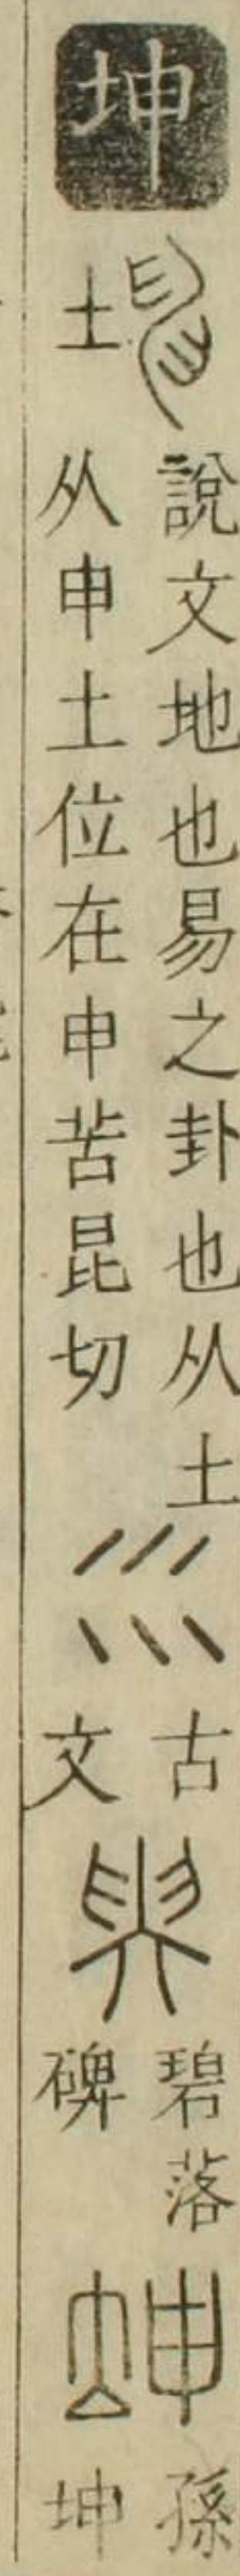 坤
說文地也易之卦也从土
从申土位在申苦昆切
古
文
碧落
碑
孫
坤